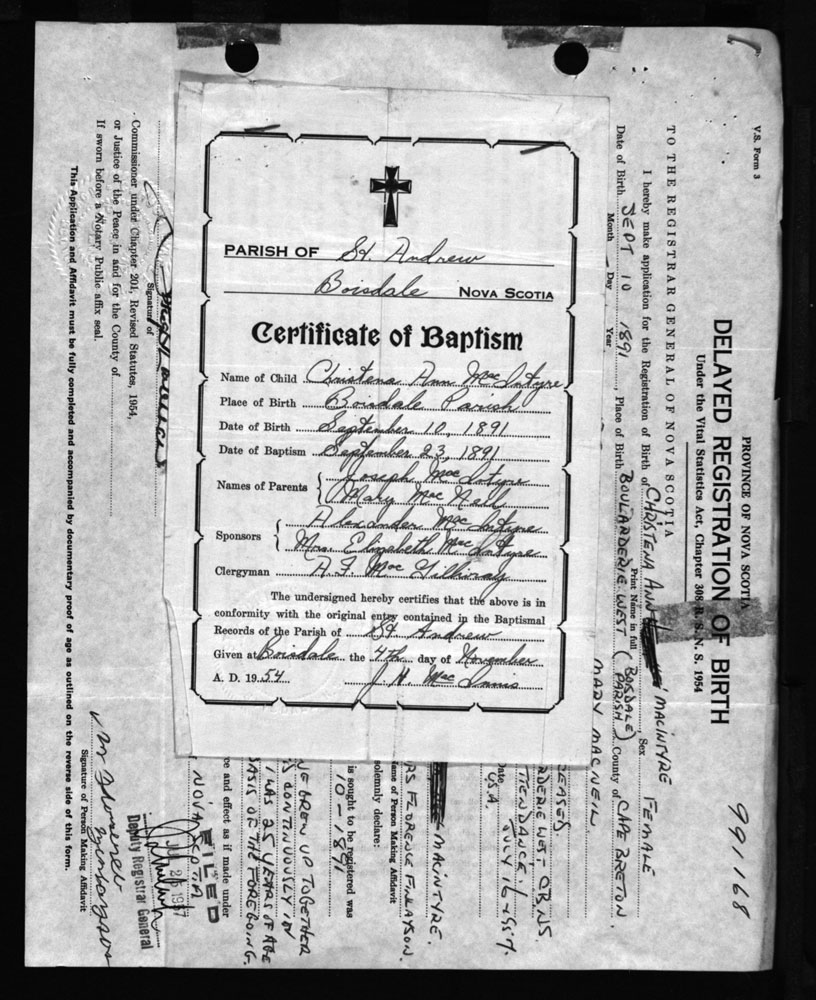 PARISH OF St. Andrew
Boisdale NOVA SCOTIA
Certificate of Baptism
Name of Child Christena Ann MacIntyre
Place of Birth Boisdale Parish
Date of Birth September 10, 1891
Date of Baptism September 23, 1891
Names of Parents { Joseph MacIntyre
Mary MacNeil
Sponsors { Alexander MacIntyre
Mrs. Elizabeth MacIntyre
Clergyman A. F. MacGillivray
The undersigned hereby certifies that the above is in
conformity with the original entry contained in the Baptismal
Records of the Parish of St. Andrew
Given at Boisdale the 4th day of November
A. D. 1954 J. H. MacInnis
V.S. Form 3
991168
PROVINCE OF NOVA SCOTIA
DELAYED REGISTRATION OF BIRTH
Under the Vital Statistics Act, Chapter 308, R. S. N. S. 1954
TO THE REGISTRAR GENERAL OF NOVA SCOTIA
I hereby make application for the Registration of Birth of CHRISTENA ANN MACINTYRE Sex FEMALE
Print Name in full
Date of Birth SEPT 10 1891, Place of Birth BOULARDERIE WEST (BOISDALE PARISH) County of CAPE BRETON
Month Day Year
MARY MACNEIL
DERIE WEST CB, NS.
TTENDANCE:
Date JULY 16-1957.
USA.
MACINTYRE.
RS FLORENCE FINLAYSON.
Name of Person Making Affidavit
solemnly declare:
is sought to be registered was
10-1891
WE GREW UP TOGETHER
CONTINUOUSLY IN
I WAS 25 YEARS OF AGE
BASIS OF THE FOREGOING.
ce and effect as if made under
NOVA SCOTIA
FILED
JUL 26 1957
Deputy Registrar General
Signature of
Commissioner under Chapter 201, Revised Statutes, 1954,
or Justice of the Peace in and for the County of
If sworn before a Notary Public affix seal.
Signature of Person Making Affidavit
This Application and Affidavit must be fully completed and accompanied by documentary proof of age as outlined on the reverse side of this form.